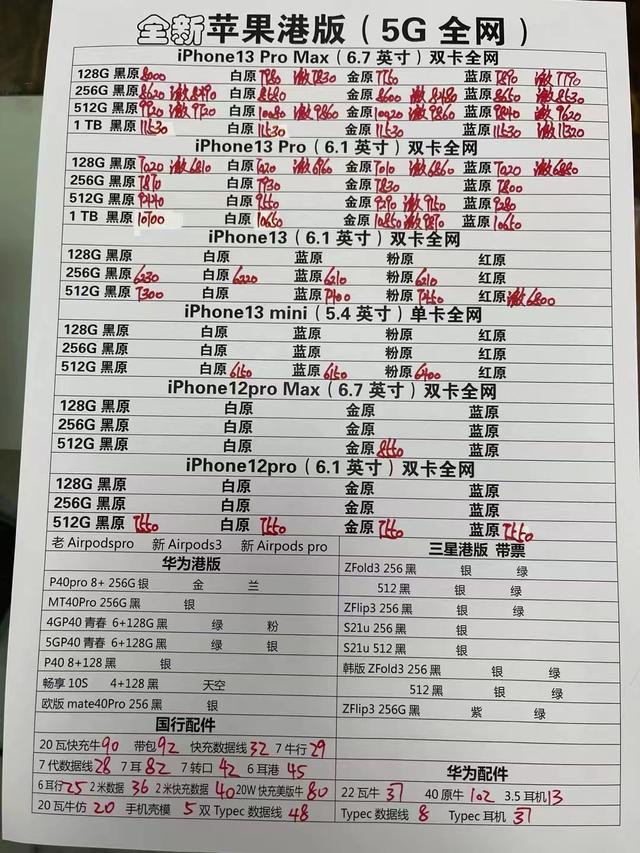 全新苹果港版（5G 全网）
iPhone13 Pro Max（6.7 英寸）双卡全网
128G 黑原 8000 白原 7980 激7830 金原 7760 蓝原 7890 激7790
256G 黑原 8620 激8490 白原 8680 金原 8600 激8480 蓝原 8650 激8530
512G 黑原 9920 激9720 白原 10080 激9860 金原 10020 激9860 蓝原 9840 激9620
1 TB 黑原 11530 白原 11530 金原 11530 蓝原 11530 激11320
iPhone13 Pro（6.1 英寸）双卡全网
128G 黑原 7020 激6810 白原 7020 激6960 金原 7010 激6860 蓝原 7020 激6880
256G 黑原 7870 白原 7930 金原 7830 蓝原 7800
512G 黑原 9440 白原 9550 金原 9290 激9150 蓝原 9280
1 TB 黑原 10700 白原 10650 金原 10850 激9870 蓝原 10650
iPhone13（6.1 英寸）双卡全网
128G 黑原 白原 蓝原 粉原 红原
256G 黑原 6230 白原 6220 蓝原 6210 粉原 6210 红原
512G 黑原 7300 白原 蓝原 7400 粉原 7450 红原 激6800
iPhone13 mini（5.4 英寸）单卡全网
128G 黑原 白原 蓝原 粉原 红原
256G 黑原 白原 蓝原 粉原 红原
512G 黑原 白原 6150 蓝原 6150 粉原 6400 红原
iPhone12pro Max（6.7 英寸）双卡全网
128G 黑原 白原 金原 蓝原
256G 黑原 白原 金原 蓝原
512G 黑原 白原 金原 8550 蓝原
iPhone12pro（6.1 英寸）双卡全网
128G 黑原 白原 金原 蓝原
256G 黑原 白原 金原 蓝原
512G 黑原 7550 白原 7550 金原 7550 蓝原 7550
老 Airpodspro 新 Airpods3 新 Airpods pro
华为港版
P40pro 8+ 256G 银 金 兰
MT40Pro 256G 黑 银
4GP40 青春 6+128G 黑 绿 粉
5GP40 青春 6+128G 黑 绿 银
P40 8+128 黑 银
畅享 10S 4+128 黑 天空
欧版 mate40Pro 256 黑 银
国行配件
20 瓦快充牛 90 带包 92 快充数据线 32 7 牛行 29
7 代数据线 28 7 耳 82 7 转口 42 6 耳港 45
6 耳行 25 2 米数据 36 2 米快充数据 40 20W 快充美版牛 80
20 瓦牛仿 20 手机壳模 5 双 Typec 数据线 48
三星港版 带票
ZFold3 256 黑 银 绿
512 黑 银 绿
ZFlip3 256 黑 银 绿
S21u 256 黑 银
S21u 512 黑 银
韩版 ZFold3 256 黑 银 绿
512 黑 银 绿
ZFlip3 256G 黑 紫 绿
华为配件
22 瓦牛 37 40 原牛 102 3.5 耳机 13
Typec 数据线 8 Typec 耳机 37